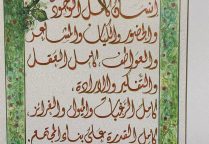 إنسان كامل الوجود
والحضور والكيان والمشاعر
والعواطف، كامل العقل
والتفكير والإرادة،
كامل الرغبات والميول والغرائز،
كامل القدرة على بناء المجتمع